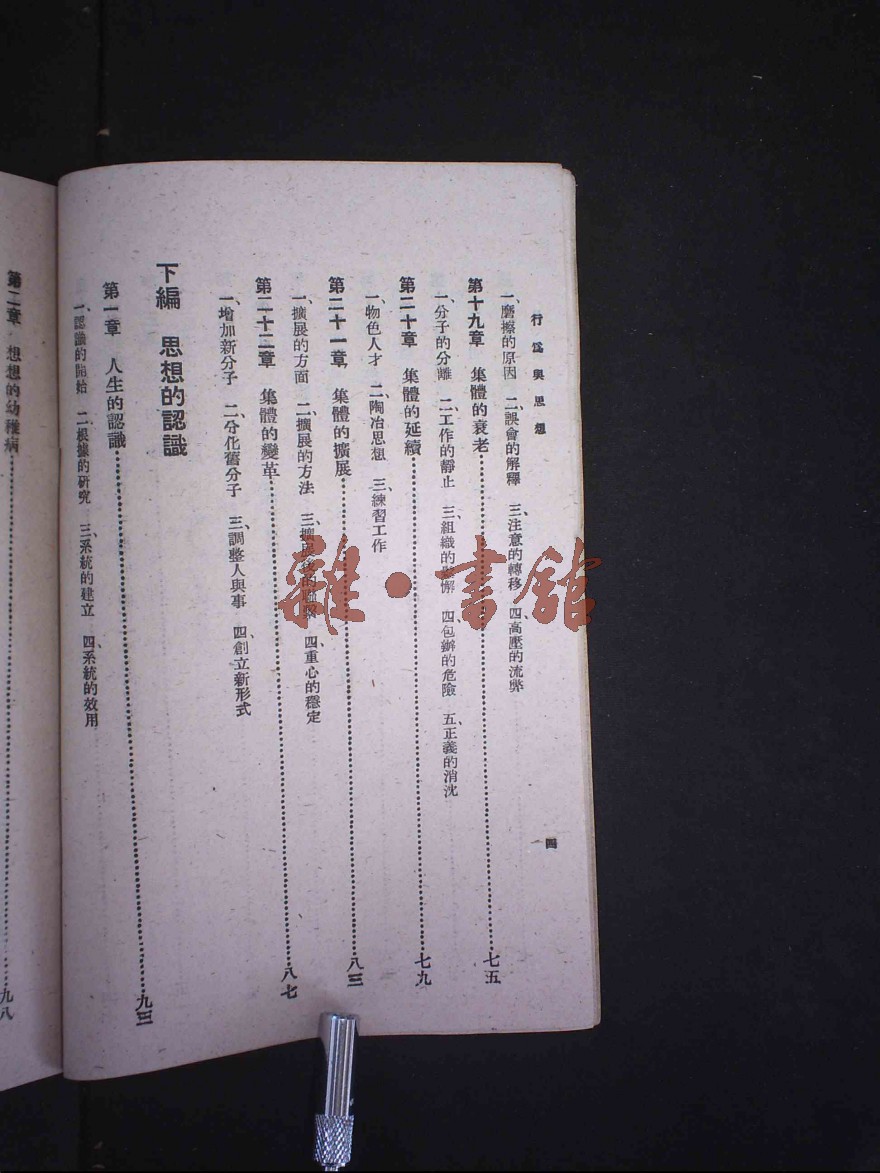 行為與思想
四
一、磨擦的原因 二、誤會的解釋 三、注意的轉移 四、高壓的流弊
第十九章 集體的衰老……七五
一、分子的分離 二、工作的靜止 三、組織的 懈 四、包辦的危險 五、正義的消沈
第二十章 集體的延續……七九
一、物色人才 二、陶冶思想 三、練習工作
第二十一章 集體的擴展……八三
一、擴展的方面 二、擴展的方法 三、擴展後的 四、重心的穩定
第二十二章 集體的變革……八七
一、增加新分子 二、分化舊分子 三、調整人與事 四、創立新形式
下編 思想的認識
第一章 人生的認識……九三
一、認識的開始 二、根據的研究 三、系統的建立 四、系統的效用
第二章 想想的幼稚病……九八
雜·書館